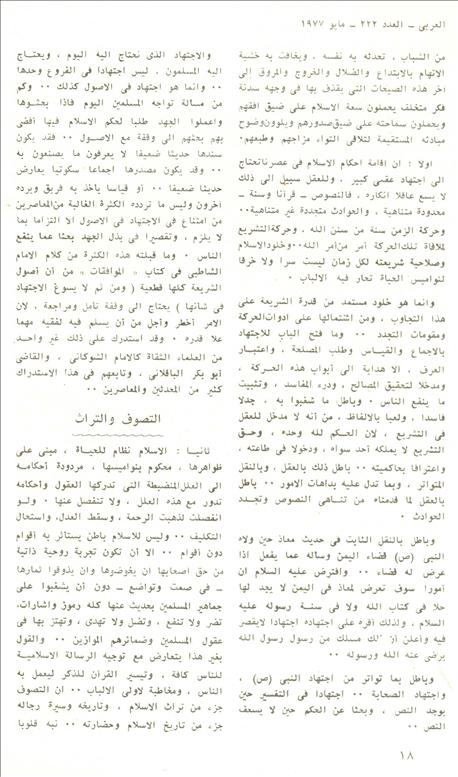 العربى – العدد ٢٢٢ – مايو ١٩٧٧
من الشباب ، تحدثه به نفسه . ويخافت به خشية
الاتهام بالابتداع والضلال والخروج والمروق الى
آخر هذه الصيحات التى يقذف بها فى وجهه سدنة
فكر متخلف يحملون سعة الاسلام على ضيق افقهم
ويحملون سماحته على ضيق صدورهم ويلوون وضوح
مبادئه المستقيمة لتلاقى التواء مزاجهم وطبعهم .
اولا : ان اقامة احكام الاسلام فى عصرنا تحتاج
الى اجتهاد عقلى كبير ، وللعقل سبيل الى ذلك
لا يسع عاقلا انكاره . فالنصوص – قرآنا وسنة –
محدودة متناهية ، والحوادث متجددة غير متناهية ٠٠
وحركة الزمن سنة من سنن الله . وحركة التشريع
لملاقاة تلك الحركة أمر من أمر الله ٠٠ وخلود الاسلام
وصلاحية شريعته لكل زمان ليست سرا ولا خرقا
لنواميس الحياة تحار فيه الالباب .
وانما هو خلود مستمد من قدرة الشريعة على
هذا التجاوب ، ومن اشتمالها على ادوات الحركة
ومقومات التجدد ٠٠ وما فتح الباب للاجتهاد
بالاجماع والقياس وطلب المصلحة ، واعتبار
العرف . الا هداية الى أبواب هذه الحركة ،
ومدخلا لتحقيق المصالح ، ودرء المفاسد ، وتثبيت
ما ينفع الناس . وباطل ما شغبوا به ، جدلا
فاسدا ، ولعبا بالالفاظ ، من أنه لا مدخل للعقل
فى التشريع ، لان الحكم لله وحده ، وحق
التشريع لا يملكه أحد سواه ، ودخولا فى طاعته ،
واعترافا بحاكميته ٠٠ باطل ذلك بالعقل ، وبالنقل
المتواتر ، وبما تدل عليه بداهات الامور ٠٠ باطل
بالعقل لما قدمناه من تناهى النصوص وتجدد
الحوادث .
وباطل بالنقل الثابت فى حديث معاذ حين ولاه
النبى (ص) قضاء اليمن وسأله عما يفعل اذا
عرض له قضاء ٠٠ وافترض عليه السلام ان
أمورا سوف تعرض لمعاذ فى اليمن لا يجد لها
حلا فى كتاب الله ولا فى سنة رسوله عليه
السلام ، ولذلك أقره على اجتهاده اجتهادا لايقصر
فيه وأعلن أن ذلك مسلك من رسول رسول الله
يرضى عنه الله ورسوله ٠٠
وباطل بما تواتر من اجتهاد النبى (ص) ،
واجتهاد الصحابة ٠٠ اجتهادا فى التفسير حين
يوجد النص ، وبحثا عن الحكم حين لا يسعف
النص ٠٠
والاجتهاد الذى نحتاج اليه اليوم ، ويحتاج
اليه المسلمون . ليس اجتهادا فى الفروع وحدها
٠٠ وانما هو اجتهاد فى الاصول كذلك ٠٠ وكم
من مسألة تواجه المسلمين اليوم فاذا بحثوها
وأعملوا الجهد طلبا لحكم الاسلام فيها أفضى
بهم بحثهم الى وقفة مع الاصول ٠٠ فقد يكون
سندها حديثا ضعيفا لا يعرفون ما يصنعون به
٠٠ وقد يكون مصدرها اجماعا سكوتيا يعارض
حديثا ضعيفا ٠٠ أو قياسا ياخذ به فريق ويرده
آخرون وليس ما تردده الكثرة الغالبة من المعاصرين
من امتناع فى الاجتهاد فى الاصول الا التزاما بما
لا يلزم ، وتقصيرا فى بذل الجهد بحثا عما ينفع
الناس . وما قبلته هذه الكثرة من كلام الامام
الشاطبى فى كتاب « الموافقات » من أن أصول
الشريعة كلها قطعية ( ومن ثم لا يسوغ الاجتهاد
فى شأنها ) يحتاج الى وقفة تامل ومراجعة ، لان
الامر أخطر وأجل من أن يسلم فيه لفقيه مهما
علا قدره . وقد استدرك على ذلك غير واحد
من العلماء الثقاة كالامام الشوكانى ، والقاضى
أبو بكر الباقلانى ، وتابعهم فى هذا الاستدراك
كثير من المحدثين والمعاصرين ٠٠
التصوف والتراث
ثانيا : الاسلام نظام للحياة ، مبنى على
ظواهرها ، محكوم بنواميسها ، مردودة أحكامه
الى العلل المنضبطة التى تدركها العقول وأحكامه
تدور مع هذه العلل ، ولا تنفصل عنها . ولو
انفصلت لذهبت الرحمة ، وسقط العدل ، واستحال
التكليف ٠٠ وليس للاسلام باطن يستاثر به أقوام
دون أقوام ٠٠ الا أن تكون تجربة روحية ذاتية
من حق أصحابها ان يخوضوها وان يذوقوا ثمارها
– فى صمت وتواضع – دون أن يشغبوا على
جماهير المسلمين بحديث عنها كله رموز واشارات،
تضر ولا تنفع ، وتضل ولا تهدى ، وتهتز بها فى
عقول المسلمين وضمائرهم الموازين ٠٠ والقول
بغير هذا يتعارض مع توجيه الرسالة الاسلامية
للناس كافة ، وتيسير القرآن للذكر ليعمل به
الناس ، ومخاطبة لاولى الالباب ٠٠ ان التصوف
جزء من تراث الاسلام ، وتاريخه وسيرة رجاله
جزء من تاريخ الاسلام وحضارته ٠٠ نبه قلوبا
١٨